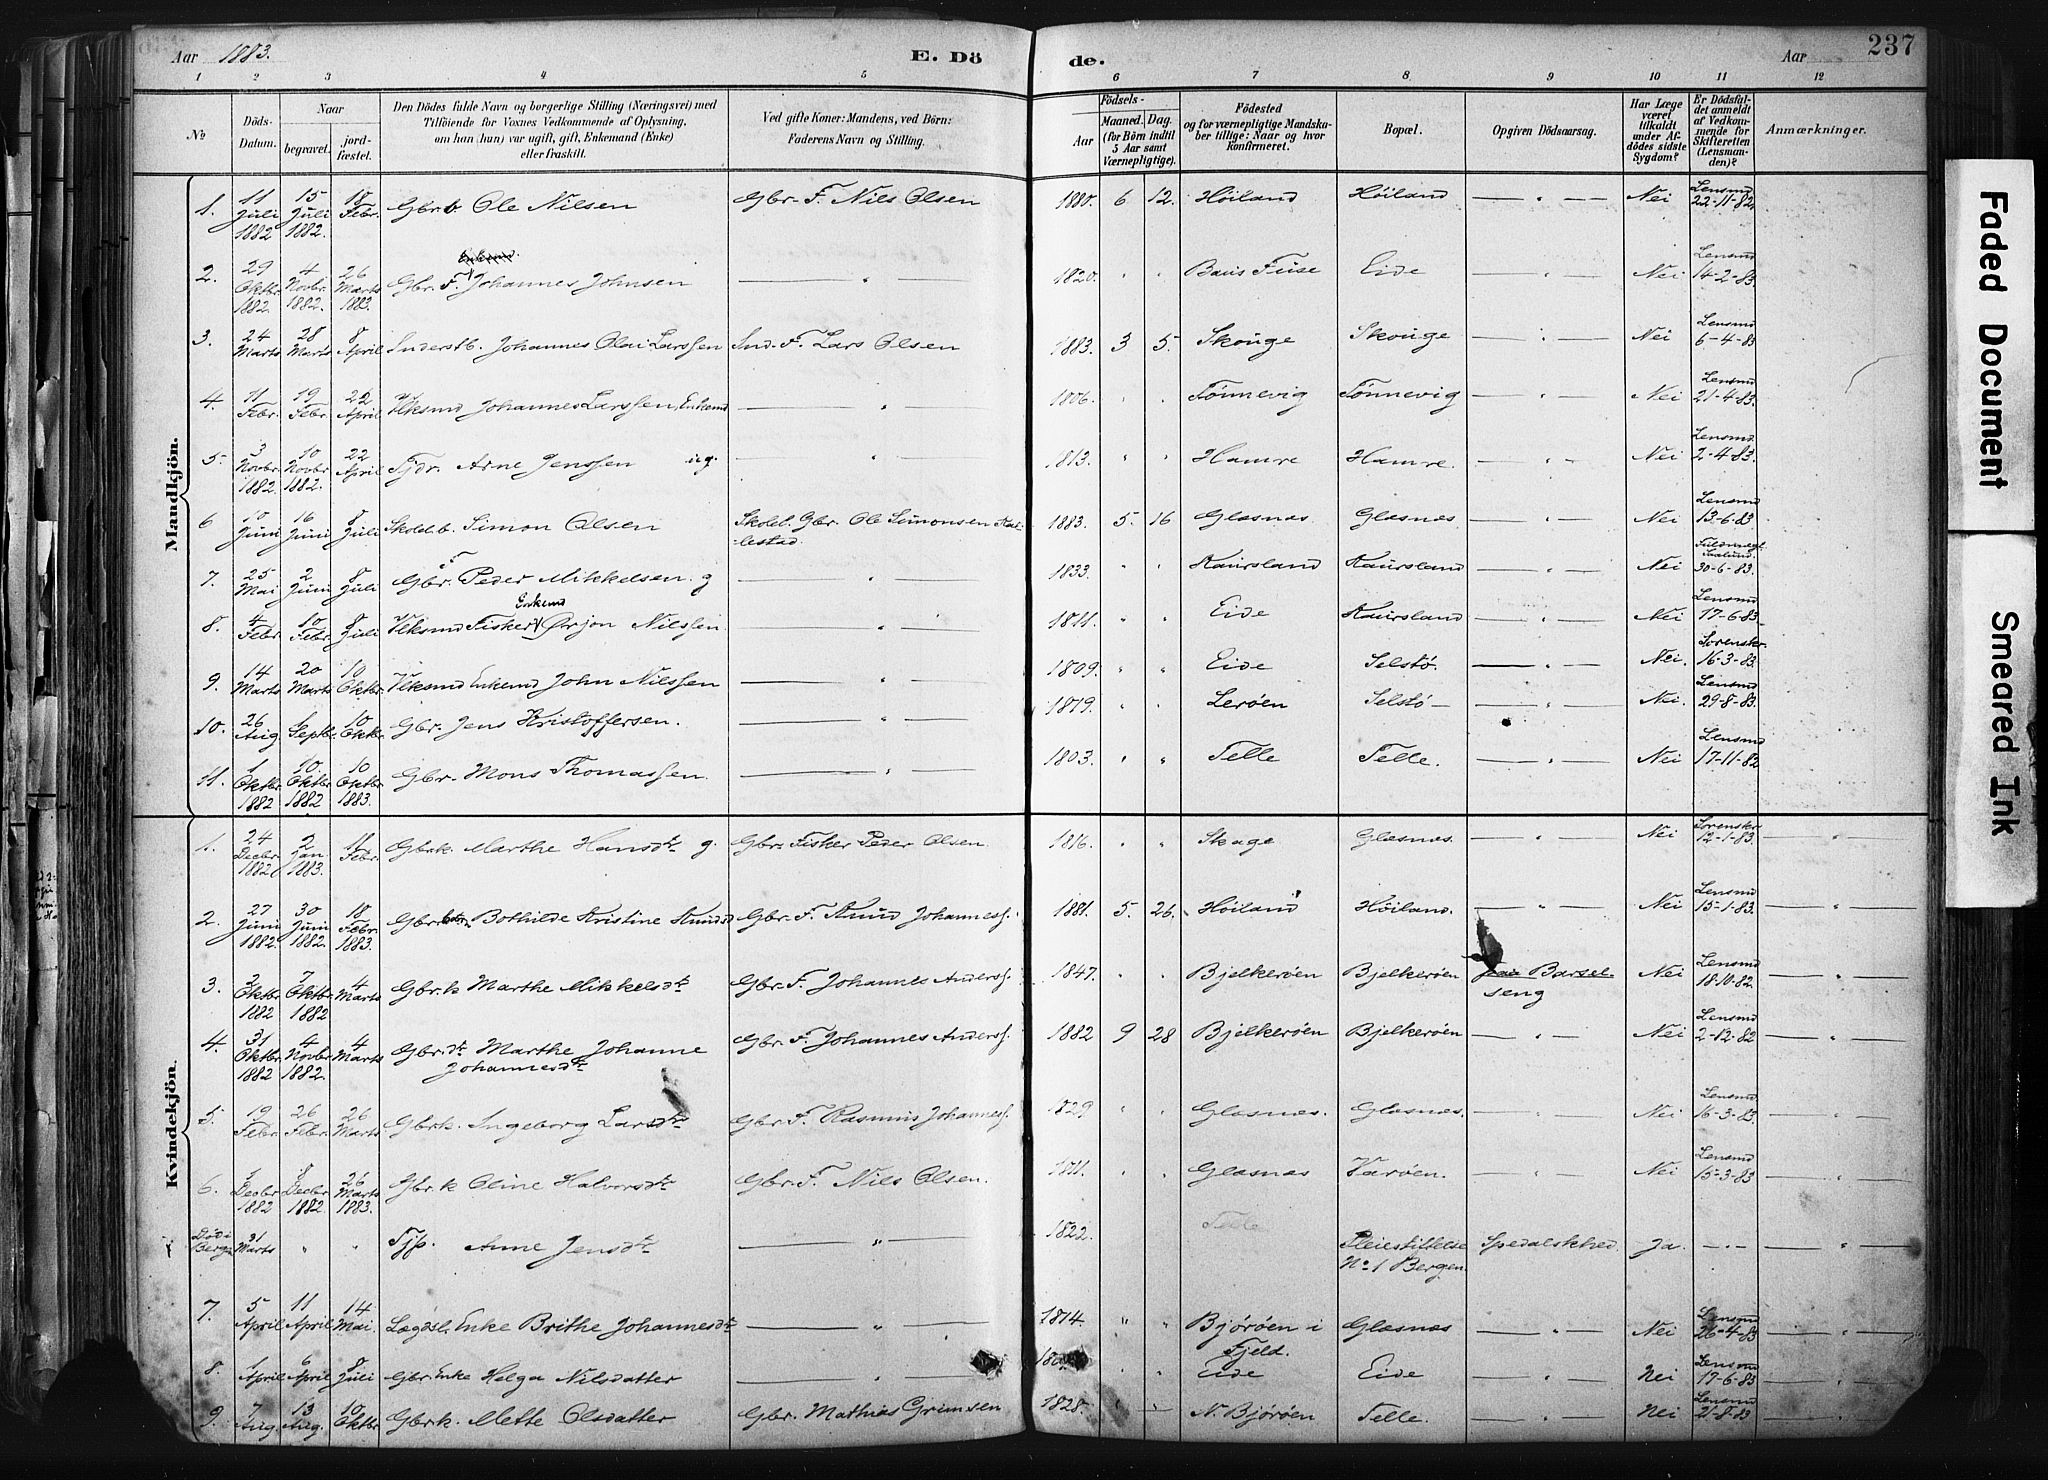 Aar 1883. E. Dö de. Aar 237
1 2 3 4 5 6 7 8 9 10 11 12
No
Döds-Datum.
Naar
begravet.
jord-fæstet.
Den Dödes fulde Navn og borgerlige Stilling (Næringsvei) med
Tilföiende for Voxnes Vedkommende af Oplysning,
om han (hun) var ugift, gift, Enkemand (Enke)
eller fraskilt.
Ved gifte Koner: Mandens, ved Börn:
Faderens Navn og Stilling.
Födsels-
Aar
Maaned. Dag.
(for Börn indtil
5 Aar samt
Værnepligtige).
Födested
og for værnepligtige Mandska-
ber tillige: Naar og hvor
konfirmeret.
Bopæl.
Opgiven Dödsaarsag.
Har Læge
været
tilkaldt
under Af-
dödes sidste
Sygdom?
Er Dödsfal-
det anmeldt
af Vedkom-
mende for
Skifteretten
(Lensman-
den)?
Anmærkninger.
Mandkjön.
1. 11 Juli 1882 15 Juli 1882. 18 Febr. Gbr. b. Ole Nilsen Gbr. F. Nils Olsen 1880. 6 12. Höiland Höiland — " — Nei Lensmd 22-11-82.
2. 29 Oktbr. 1882. 4 Novbr. 1882. 26 Marts 1883. Gbr. F. Johannes Johnsen — " — 1820. " " Baus Fuse Eide — " — Nei Lensmd 14-2-83.
3. 24 Marts 28 Marts 8 April Inderstb. Johannes Olai Larssen Ind. F. Lars Olsen 1883. 3 5. Skouge Skouge — " — Nei Lensmd 6-4-83
4. 11 Febr. 19 Febr. 22 April Vlksmd Johannes Larssen, Enkemd — " — 1806. " " Tönnevig Tönnevig — " — Nei Lensmd 21-4-83.
5. 3 Novbr. 1882 10 Novbr. 1882. 22 April Tjdr. Arne Jenssen ug. — " — 1813. " " Hamre Hamre. — " — Nei Lensmd 2-4-83.
6 10 Juni 16 Juni 8 Juli Skolel.b. Simon Olsen Skolel. Gbr. Ole Simonsen Kal-
lestad. 1883. 5. 16 Glæsnæs Glæsnæs. — " — Nei Lensmd 13-6-83
7. 25 Mai 2 Juni 8 Juli Gbr. F. Peder Mikkelsen. g — " — 1833. " " Kaursland Kaursland — " — Nei 30-6-83.
8. 4 Febr. 10 Febr. 8 Juli Vlksmd Fisker Enkemd Örjan Nilssen — " — 1811. " " Eide Kaursland — " — Nei Lensmd 17-6-83.
9. 14 Marts 20 Marts 10 Oktbr. Vlksmd Enkemd John Nilssen — " — 1809. " " Eide Selstö. — " — Nei. Sorenskr. 16-3-83.
10. 26 Aug 1 Septbr. 10 Oktbr. Gbr. Jens Kristoffersen. — " — 1819. " " Leröen Selstö — — " — Nei. Lensmd 29-8-83.
11. 1 Oktbr. 1882 10. Oktbr. 1882 10 Oktbr. 1883. Gbr. Mons Thomassen. — " — 1803. " " Telle Telle. — " — Nei Lensmd 17-11-82
Kvindekjön.
1. 24 Decbr. 1882 2 Jan. 1883. 18 Febr. Gbrk. Marthe Hansdtr g. Gbr. Fisker Peder Olsen. 1816. " " Skage Glæsnæs. — " — Nei Sorenskr 12-1-83. — " —
2. 27 Juni 1882. 30 Juni 1882. 18 Febr. 1883. Gbr. Bothilde Kristine Knudsd Gbr. F. Knud Johanness. 1881. 5. 26. Höiland Höiland. — " — Nei Lensmd 15-1-83. — " —
3. 3 Oktbr. 1882 7 Oktbr. 1882 4 Marts Gbr.k Marthe Mikkelsdtr Gbr. F. Johannes Anderss. 1847. " " Bjelkeröen Bjelkeröen Barsel-
seng Nei Lensmd 18-10-82. — " —
4. 31 Oktbr. 1882 4 Novbr. 1882. 4 Marts Gbr. dtr Marthe Johanne
Johannesdtr Gbr. F. Johannes Anderss. 1882 9 28 Bjelkeröen Bjelkeröen — " — Nei Lensmd 2-12-82 — " —
5. 19 Febr. 26 Febr. 26 Marts Gbrk. Ingeborg Larsdtr Gbr. F. Rasmus Johanness. 1829 " " Glæsnæs. Glæsnæs. — " — Nei Lensmd 16-3-83. — " —
6. 3 Decbr 1882 8 Decbr 1882. 26 Marts 1883. Gbr.k Oline Halvorsdtr Gbr. F. Nils Olsen. 1811. " " Glæsnæs Varöen. — " — Nei Lensmd 15-3-83 — " —
Död i Bergn 31 Marts " " Tjp. Anne Jensdtr — " — 1822. Telle Pleiestiftelse
No 1 Bergen. Spedalskhed. Ja. — " — — " —
7. 5 April 11 April 14 Mai. Lægdsl. Enke Brithe Johannesdtr — " — 1814. " " Björöen i
Fjeld. Glæsnæs — " — Nei Lensmd 26-4-83 — " —
8. 1 April 6 April 8 Juli Gbr. Enke Helga Nilsdatter — " — " Eide Eide — " — Nei Lensm 17-6-83 — " —
9. 7 Aug. 13 Aug. 10 Oktbr Gbrk. Mette Olsdatter Gbr. Mathias Grimsen 1828. " — N. Björöen Telle. — " — Nei Lensmd 21-8-83 — " —
Faded Document
Smeared Ink